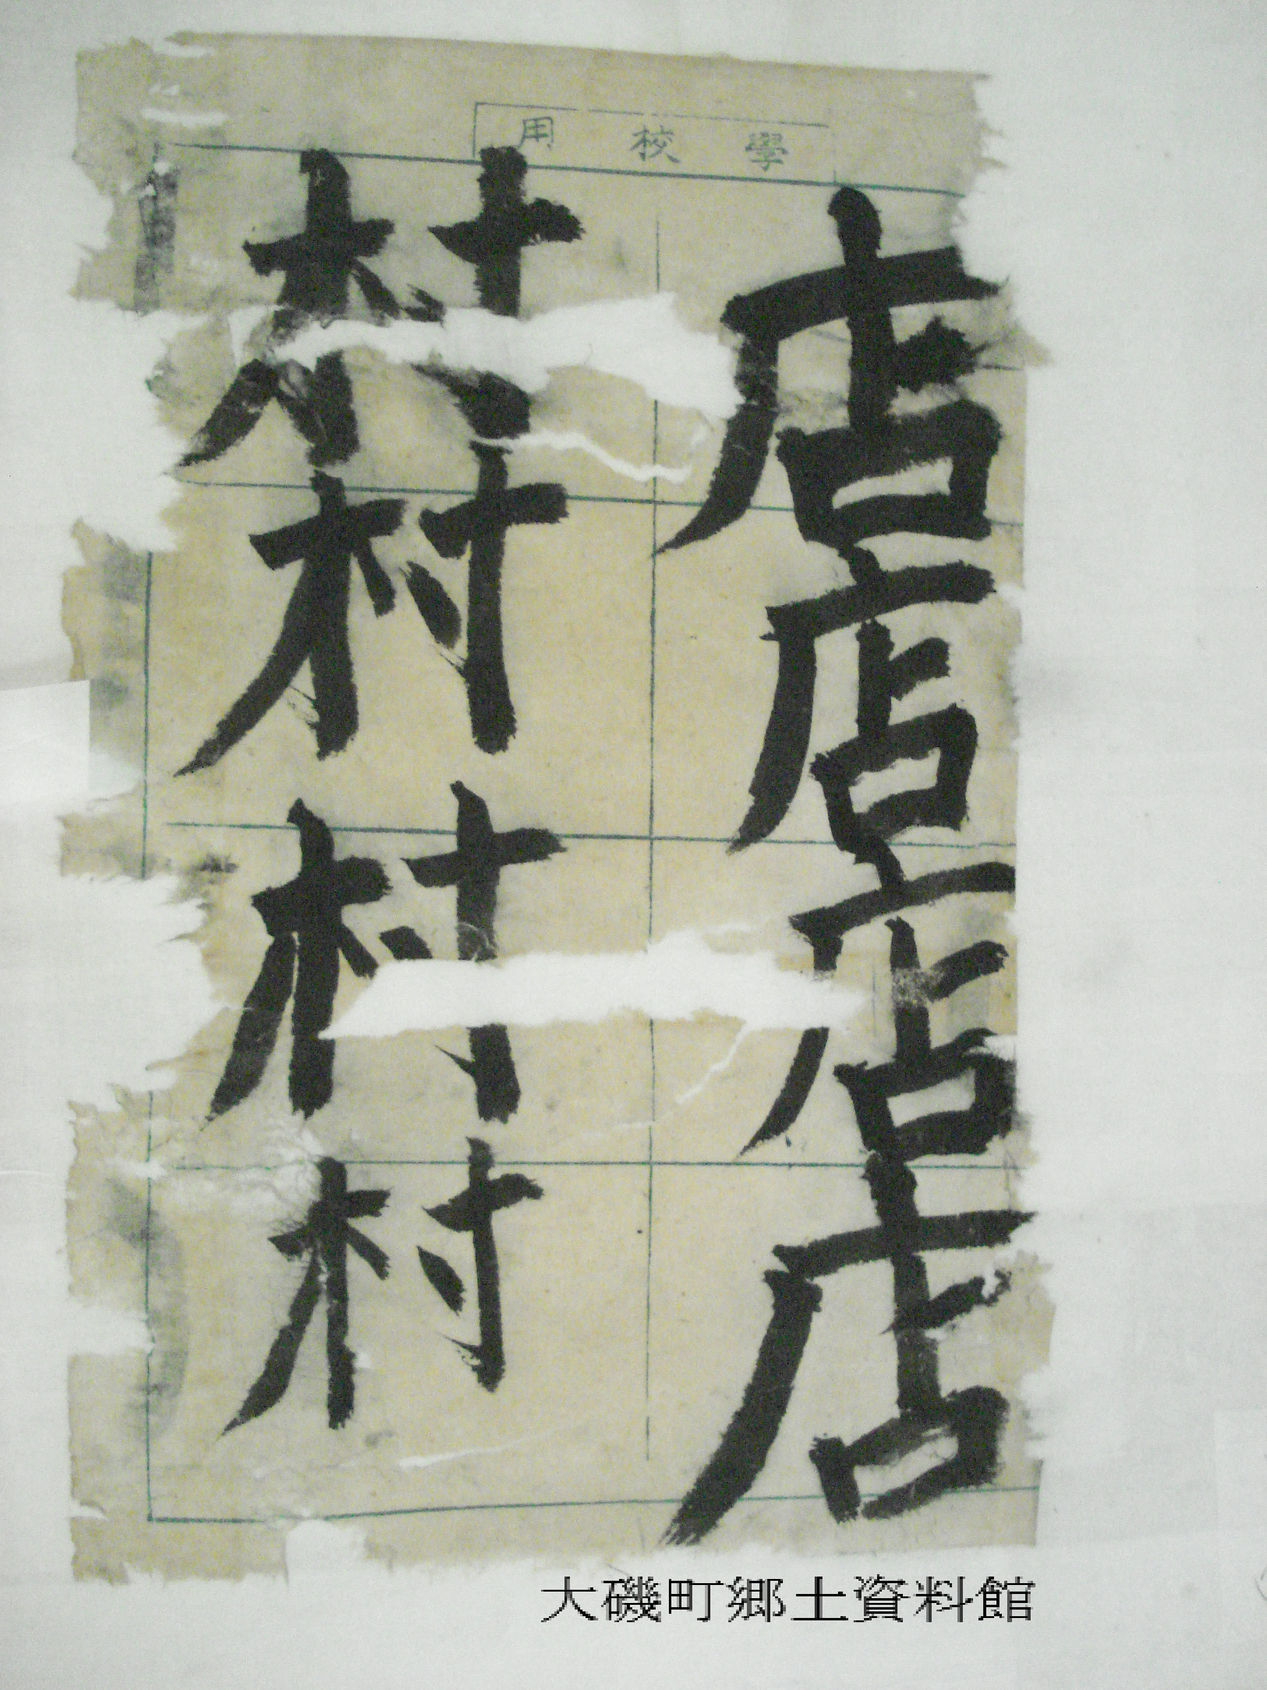 學校用
店店店店
村村村村
大磯町郷土資料館